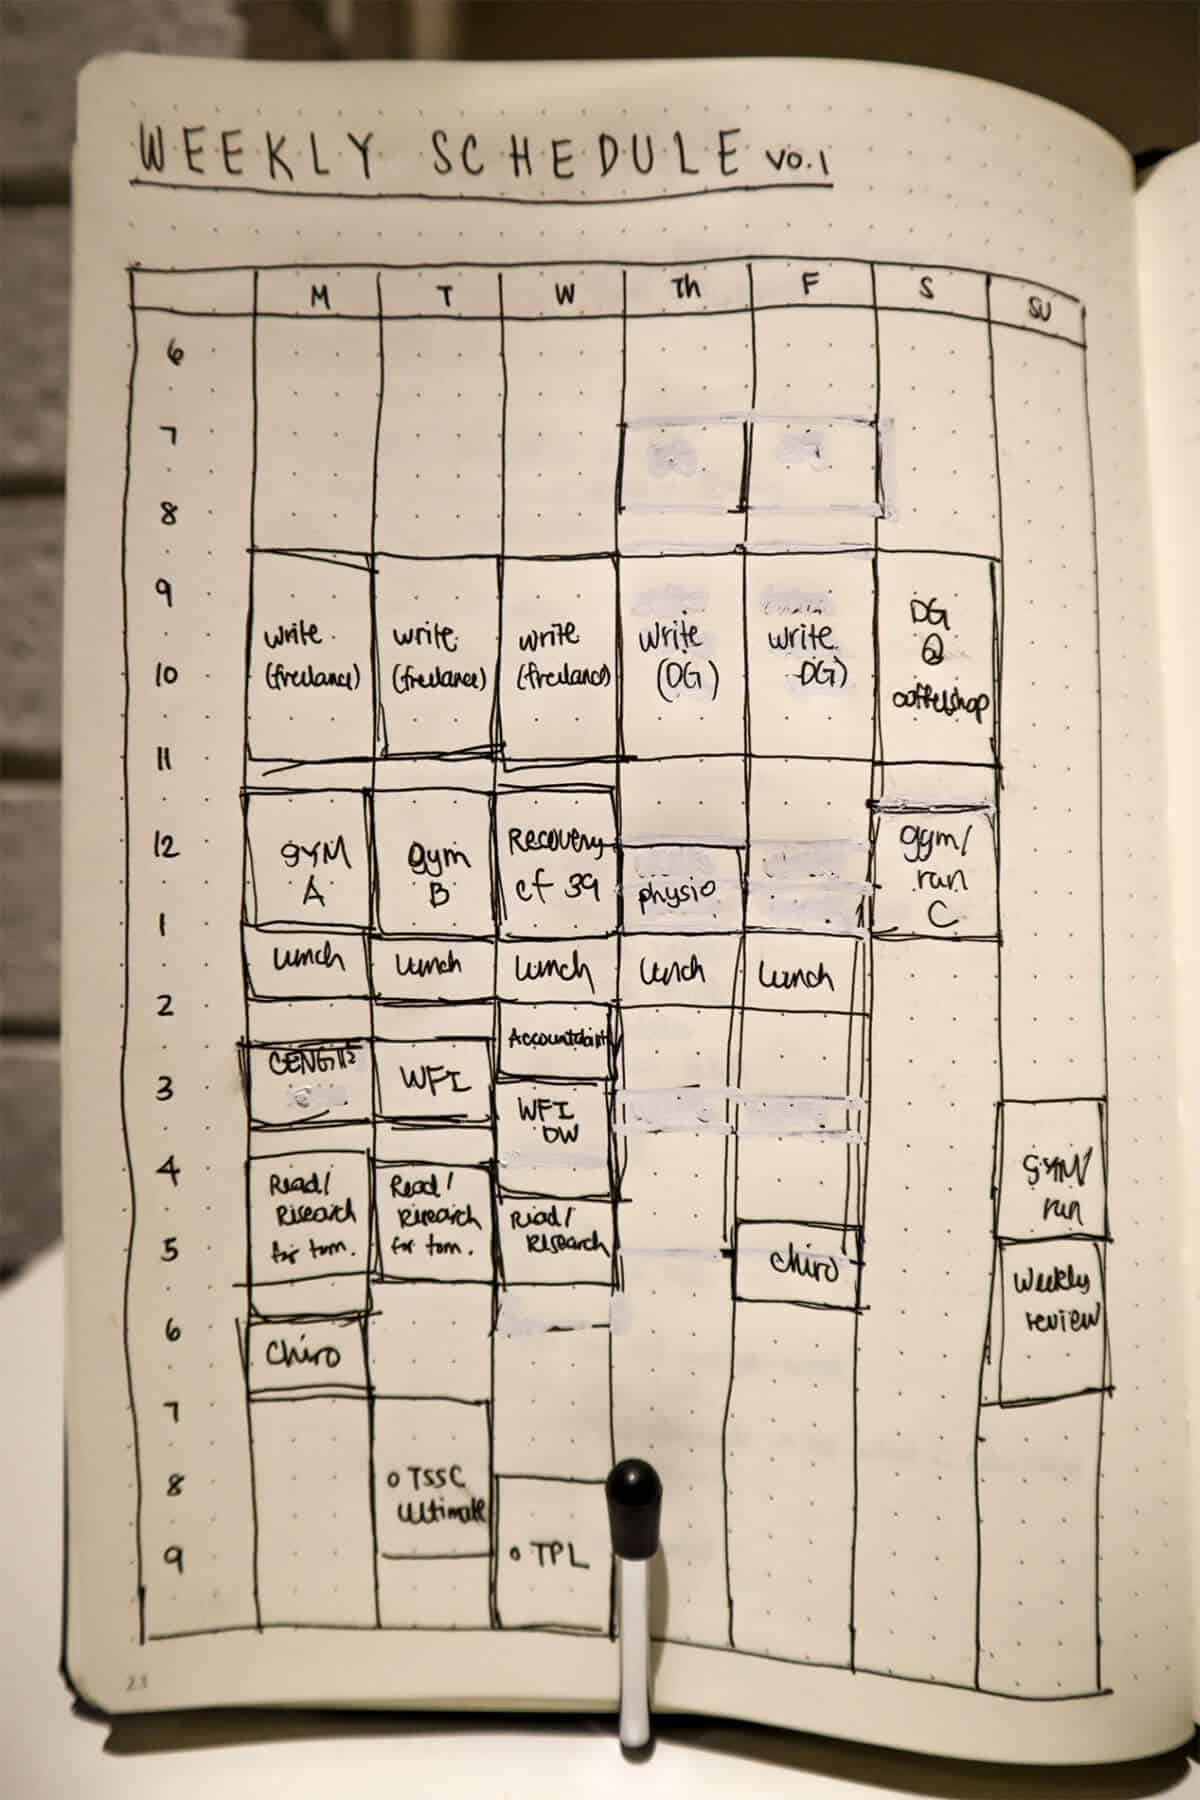 WEEKLY SCHEDULE V0.1
M T W Th F S SU
6
7
8
9
write write write write write DG
(freelance) (freelance) (freelance) (DG) DG) @
10
coffeeshop
11
12
GYM gym Recovery physio gym/
A B cf 39 run
C
1
lunch lunch lunch lunch lunch
2
CENG WFI
3
WFI
DW
4
Read/ Read/ Read/ GYM/
Research Research Research run
for tom. for tom.
5
chiro Weekly
review
6
chiro
7
8
o TSSC
Ultimate
9
o TPL
23